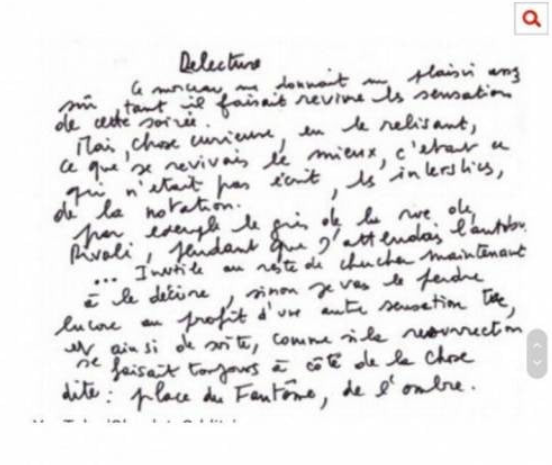 Delecture
Ce morceau me donnait un plaisir assez
sûr, tant il faisait revivre les sensations
de cette soirée.
Mais, chose curieuse, en le relisant,
ce que je revivais le mieux, c'était ce
qui n'était pas écrit, les interstices,
de la notation.
par exemple le gris de la rue de
Rivoli, pendant que j'attendais l'autobus
... Inutile au reste de chercher maintenant
à le décrire, sinon je vais le perdre
encore au profit d'une autre sensation tue,
et ainsi de suite, comme si la resurrection
se faisait toujours à côté de la chose
dite : place du Fantôme, de l'ombre.